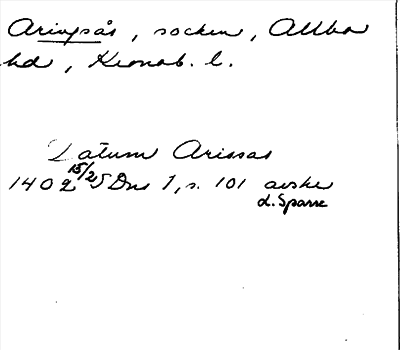 Aringsås, socken, Allbo
hd, Kronob. l.
Datum Arissas
1402 15/2 SDns 1, s. 101 avskr
d. Sparre